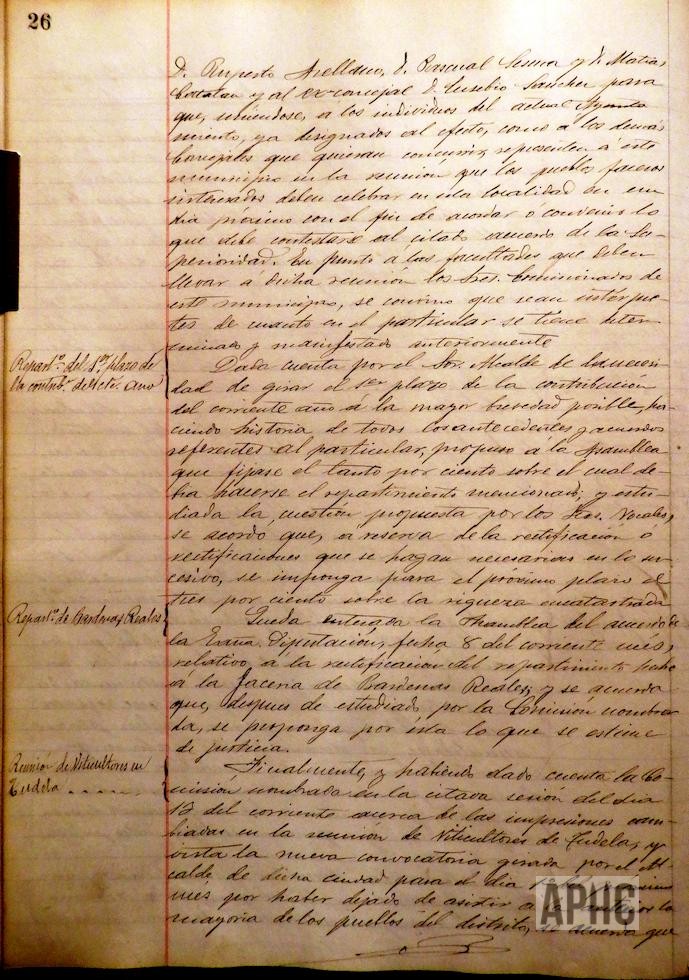 26
D. Ruperto Arellano, D. Pascual Sesma y D. Matias
Catalan y al ex-concejal D. Eusebio Sanchez para
que, uniendose, a los individuos del actual Ayunta
miento, ya designados al efecto, como a los demas
Concejales que quieran concurrir, representen a este
municipio en la reunion que los pueblos faceros
interesados deben celebrar en esta localidad en un
dia proximo con el fin de acordar o convenir lo
que debe contestarse al citado acuerdo de la Su-
perioridad. En punto a las facultades que deben
llevar a dicha reunión los Sres. Comisionados de
este municipio, se convino que sean intérpe-
tes de cuanto en el particular se tiene deter-
minado y manifestado anteriormente
Repartº. del 1er. plazo de
la contribn. del cte. año
Dada cuenta por el Sor. Alcalde de la neceni-
dad de girar el 1er plazo de la contribucion
del corriente año á la mayor brevedad posible, ha-
ciendo historia de todos los antecedentes y acuerdos
referentes al particular, propuso á la Asamblea
que fijase el tanto por ciento sobre el cual de-
bia hacerse el repartimiento mencionado; y estu-
diada la cuestión propuesta por los Sres. Vocales,
se acordo que, á reserva de la rectificación ó
rectificaciones que se hagan necesarias en lo su-
cesivo, se imponga para el próximo plazo el
tres por ciento sobre la riqueza encatastrada
Repartº. de Bardenas Reales
Queda enterada la Asamblea del acuerdo de
la Excma. Diputación, fecha 8 del corriente més,
relativo, a la rectificacion del repartimiento hecho
á la facería de Bardenas Reales; y se acuerda
que, despues de estudiado, por la Comisión nombra-
da, se proponga por esta lo que se estime
de justicia.
Reunión de Viticultores en
Tudela . . . . .
Finalmente, y habiendo dado cuenta la Co-
misión nombrada en la citada sesión del dia
12 del corriente acerca de las impresiones cam-
biadas en la reunion de Viticultores de Tudela, y
vista la nueva convocatoria girada por el Al-
calde de dicha ciudad para el dia
més por haber dejado de asistir a la
mayoria de los pueblos del distrito, se acuerda que
APHC